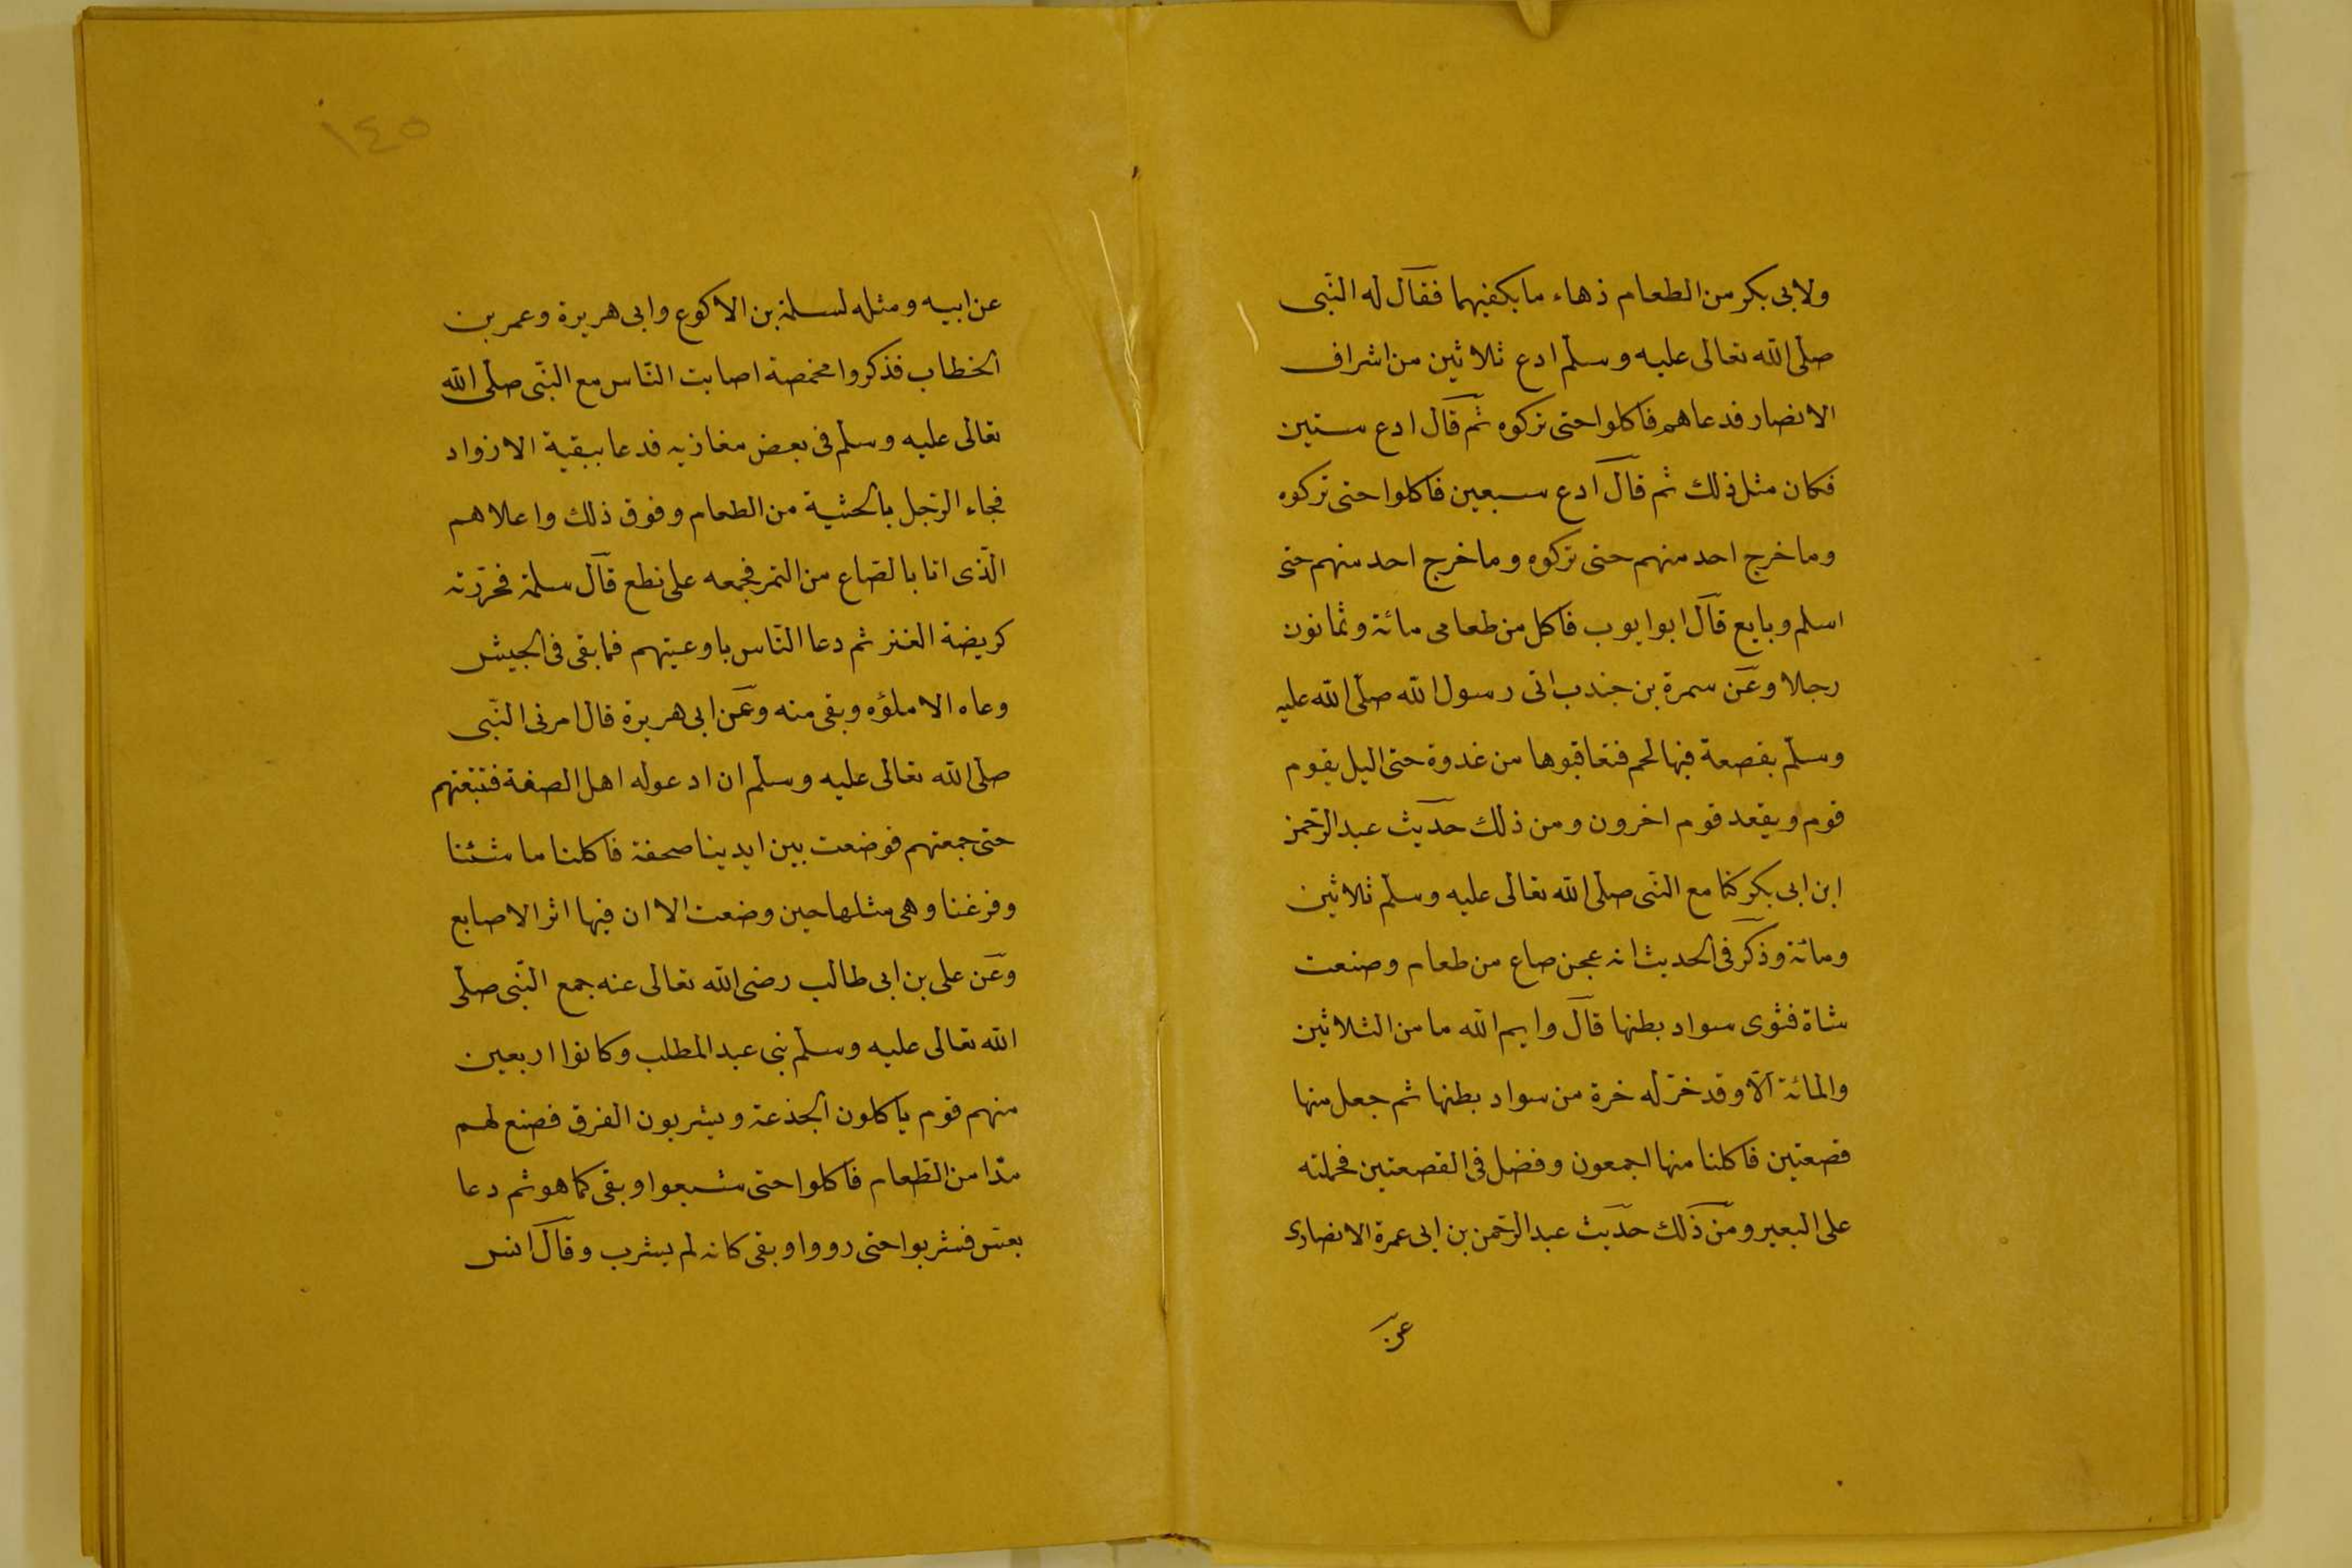 ولابى بكر من الطعام ذهاء ما يكفيهما فقال له النبى
صلى الله تعالى عليه وسلم ادع ثلاثين من اشراف
الانصار فدعاهم فاكلوا حتى تركوه ثم قال ادع ستين
فكان مثل ذلك ثم قال ادع سبعين فاكلوا حتى تركوه
وما خرج احد منهم حتى تركوه وما خرج احد منهم حتى
اسلم وبايع قال ابو ايوب فاكل من طعامى مائة وثمانون
رجلا وعن سمرة بن جندب اتى رسول الله صلى الله عليه
وسلم بقصعة فيها لحم فتعاقبوها من غدوة حتى اليل يقوم
قوم ويقعد قوم اخرون ومن ذلك حديث عبد الرحمن
ابن ابى بكر كنا مع النبى صلى الله تعالى عليه وسلم ثلاثين
ومائة وذكر فى الحديث انه عجن صاع من طعام وصنعت
شاة فشوى سواد بطنها قال وايم الله ما من الثلاثين
والمائة الا وقد خزله خرة من سواد بطنها ثم جعل منها
قصعتين فاكلنا منها اجمعون وفضل فى القصعتين فحملته
على البعير ومن ذلك حديث عبد الرحمن بن ابى عمرة الانصارى
عن
١٤٥
عن ابيه ومثله لسلمة بن الاكوع وابى هريرة وعمر بن
الخطاب فذكروا مخمصة اصابت الناس مع النبى صلى الله
تعالى عليه وسلم فى بعض مغازيه فدعا ببقية الازواد
فجاء الرجل بالحثية من الطعام وفوق ذلك واعلاهم
الذى اتا بالصاع من التمر فجمعه على نطع قال سلمة فحزرته
كريضة العنز ثم دعا الناس باوعيتهم فما بقى فى الجيش
وعاء الا ملؤه وبقى منه وعن ابى هريرة قال امرنى النبى
صلى الله تعالى عليه وسلم ان ادعو له اهل الصفة فتتبعتهم
حتى جمعتهم فوضعت بين ايدينا صحفة فاكلنا ما شئنا
وفرغنا وهى مثلها حين وضعت الا ان فيها اثر الاصابع
وعن على بن ابى طالب رضى الله تعالى عنه جمع النبى صلى
الله تعالى عليه وسلم بنى عبد المطلب وكانوا اربعين
منهم قوم ياكلون الجذعة ويشربون الفرق فصنع لهم
مدا من الطعام فاكلوا حتى شبعوا وبقى كما هو ثم دعا
بعس فشربوا حتى رووا وبقى كانه لم يشرب وقال انس